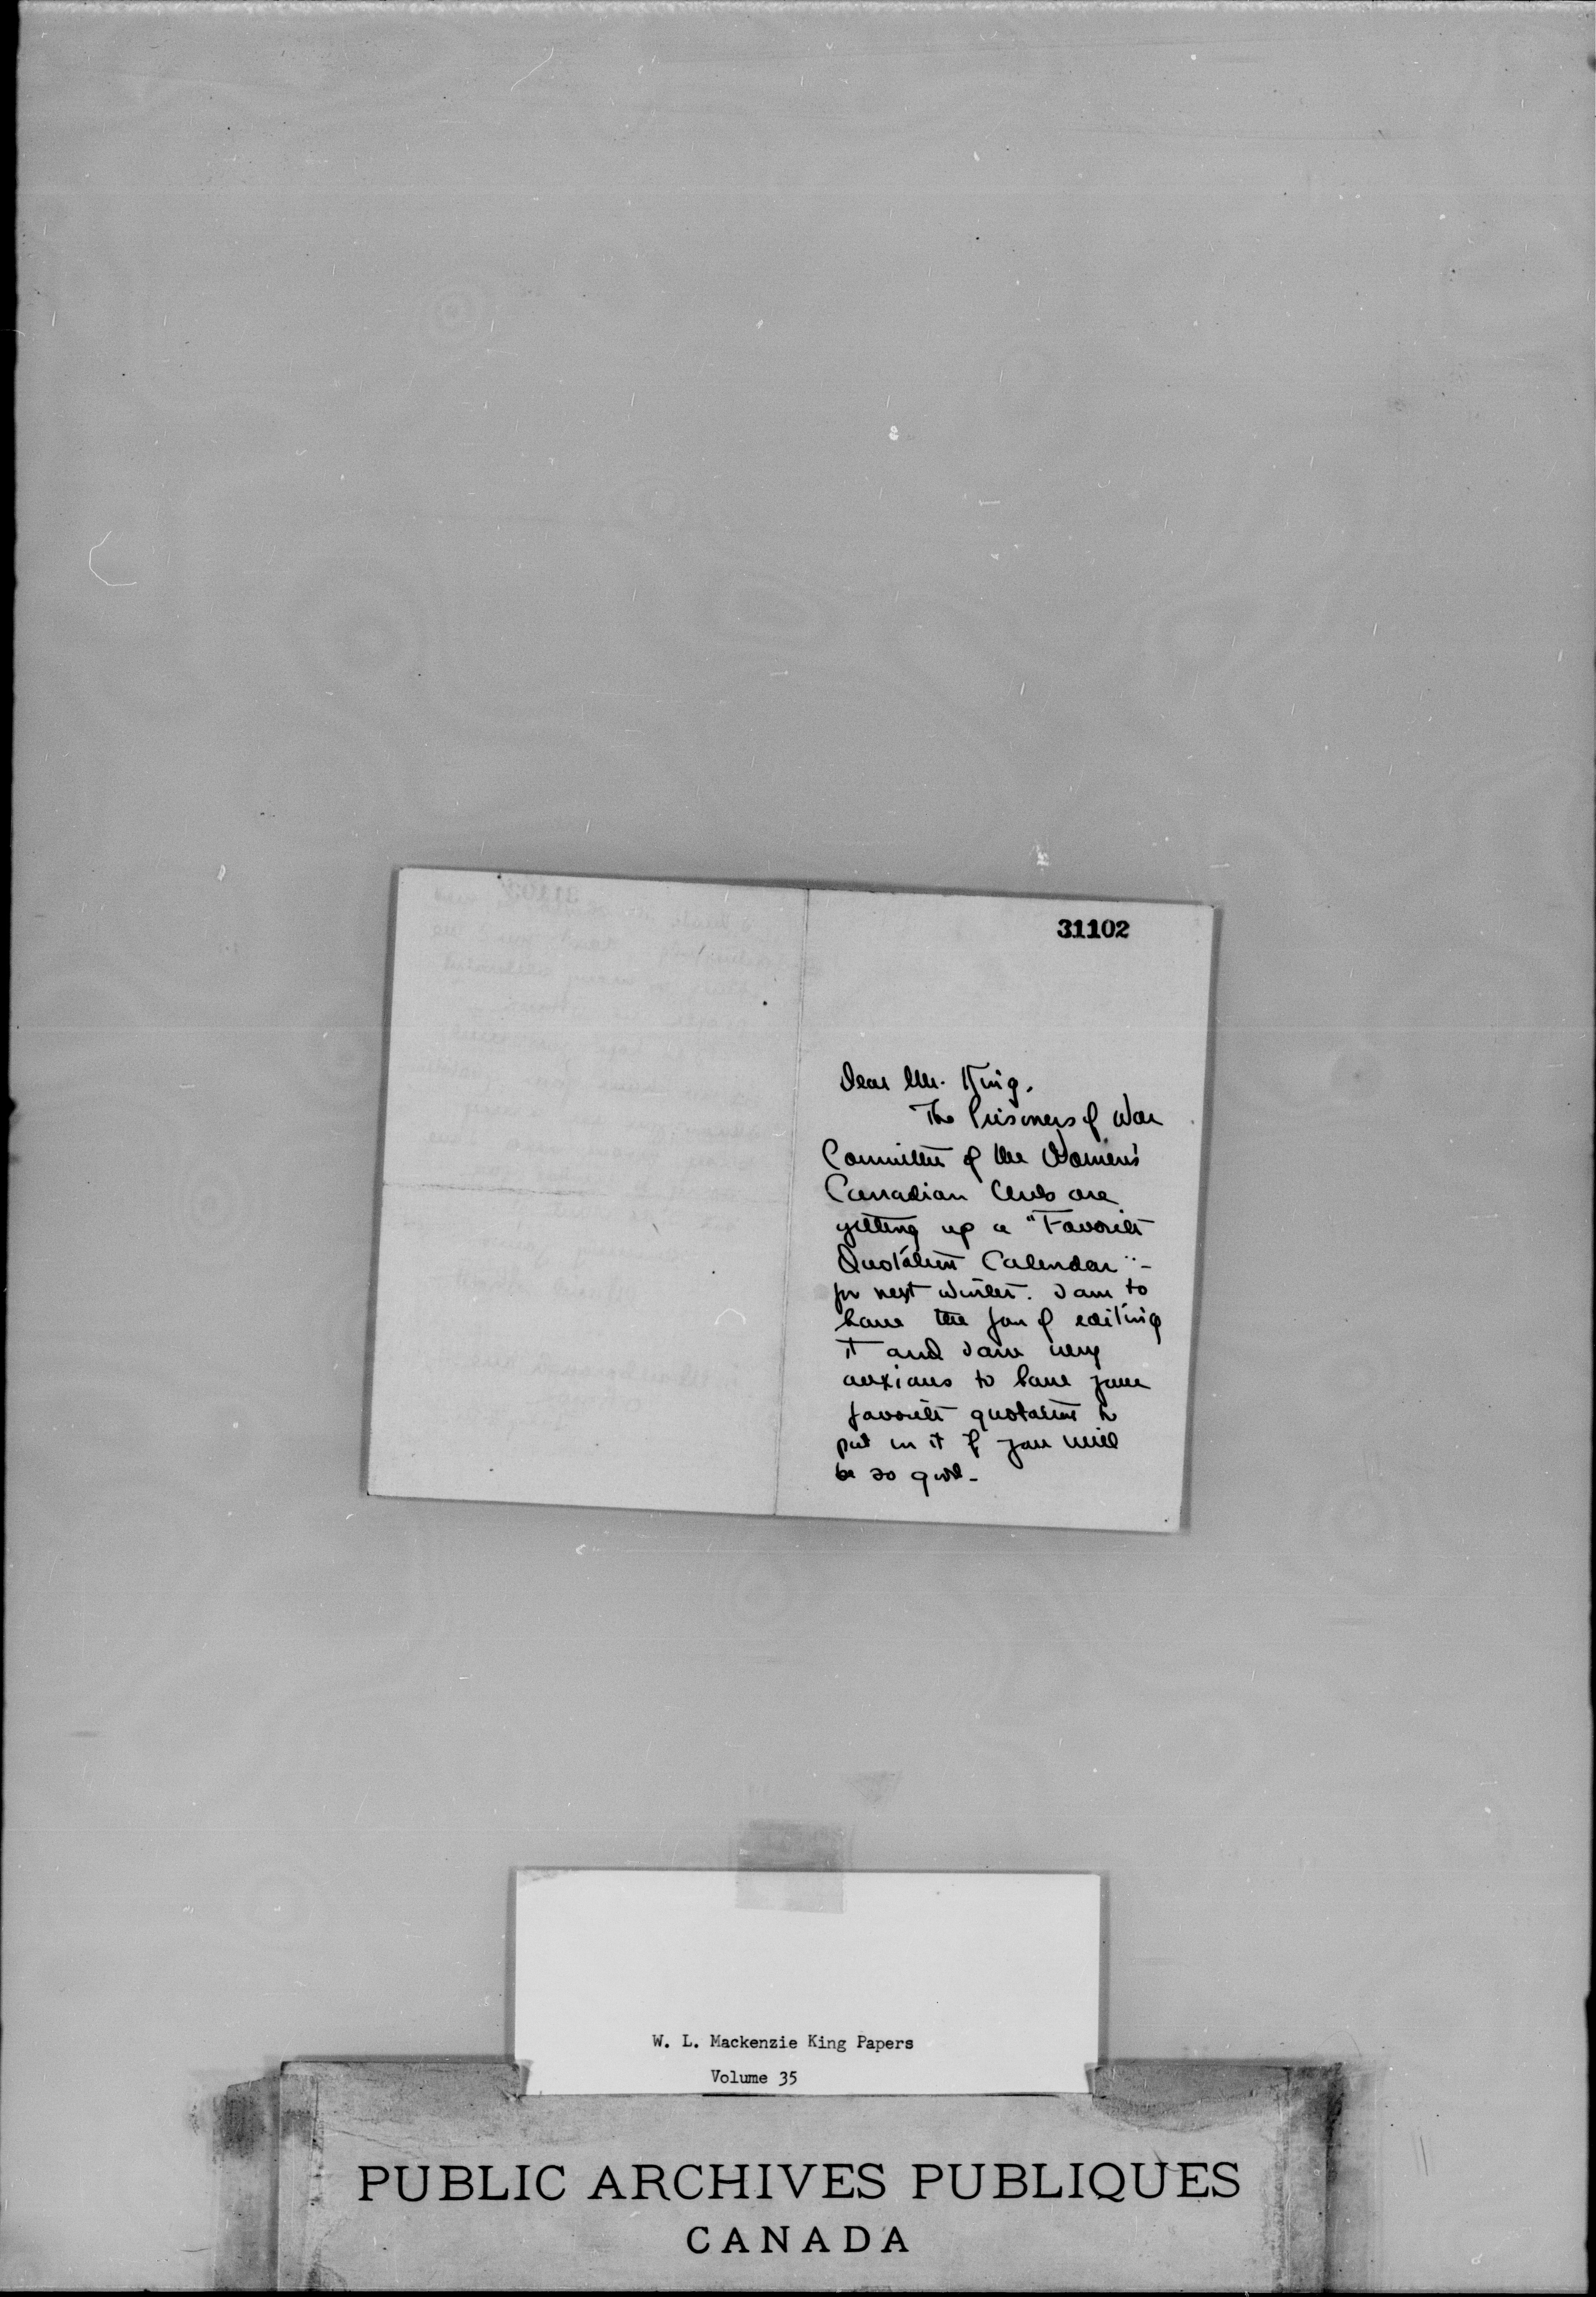 31102
Dear Mr. King.
The Prisoners of War
Committee of the Women's
Canadian Club are
getting up a "Favorite
Quotation Calendar" -
for next winter. I am to
have the fun of editing
it and I am very
anxious to have your
favorite quotation to
put in it if you will
be so good -
W. L. Mackenzie King Papers
Volume 35
PUBLIC ARCHIVES PUBLIQUES
CANADA